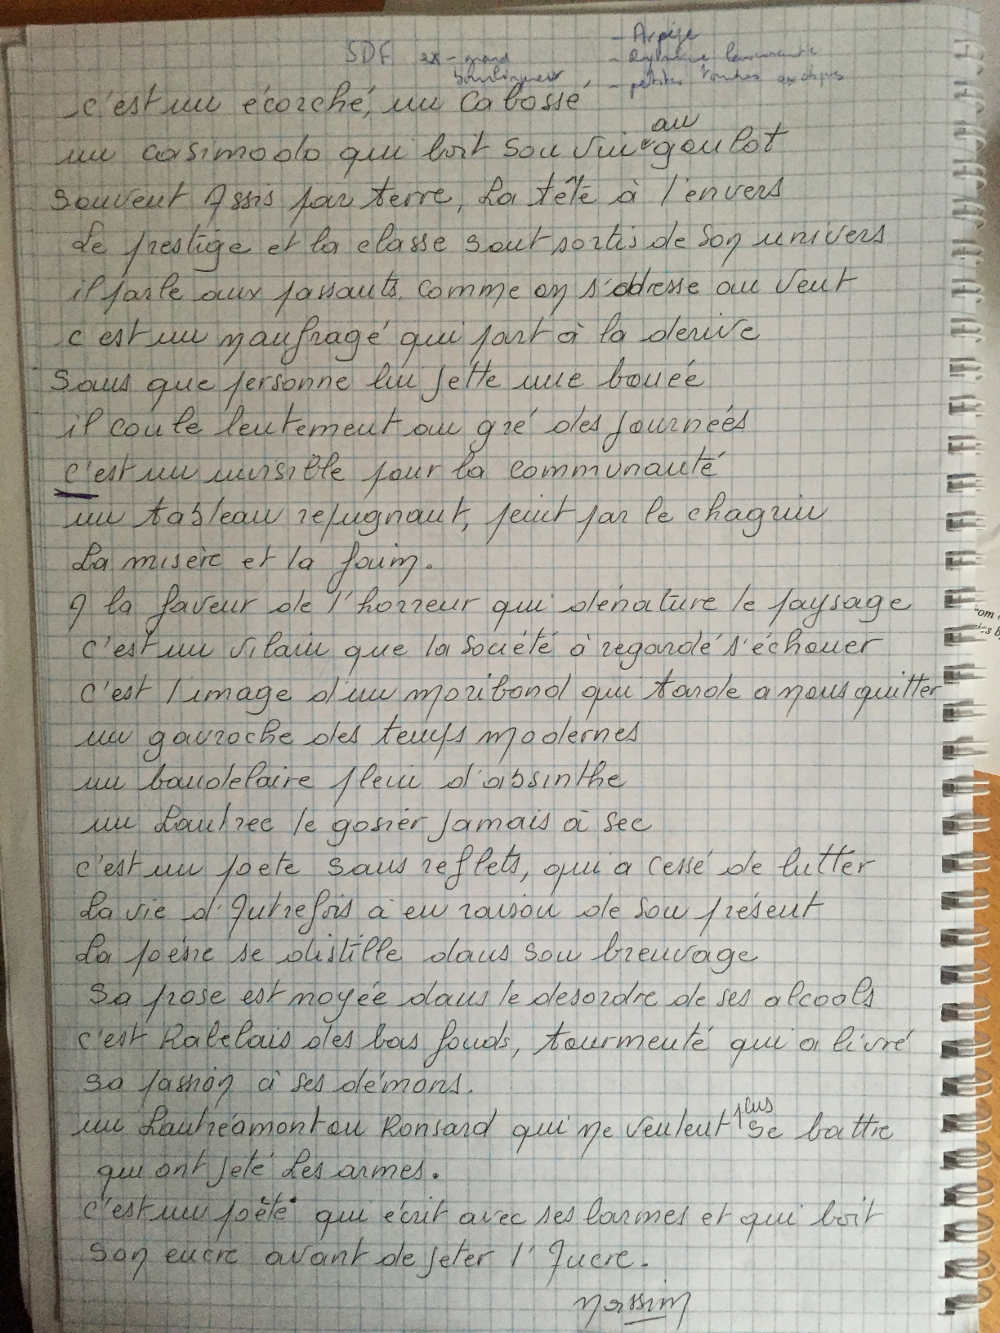 SDF ex-grand
- Arpège
- Rythme lancinante
- petites touches
c'est un écorché, un cabossé
un casimodo qui boit son vin au goulot
souvent Assis par terre, La tête à l'envers
Le prestige et la classe sont sortis de son univers
il parle aux passants comme on s'adresse au vent
c'est un naufragé qui part à la derive
sans que personne lui jette une bouée
il coule lentement au gré des journées
c'est un invisible pour la communauté
un tableau repugnant, peint par le chagrin
La misère et la faim.
A la faveur de l'horreur qui dénature le paysage
c'est un vilain que la société à regardé s'échouer
c'est l'image d'un moribond qui tarde a nous quitter
un gavroche des temps modernes
un baudelaire plein d'absinthe
un Lautrec le gosier jamais à sec
c'est un poete sans reflets, qui a cessé de lutter
La vie d'Autrefois à eu raison de son présent
La poésie se distille dans son breuvage
sa prose est noyée dans le desordre de ses alcools
c'est Rabelais des bas fonds, tourmenté qui a livré
sa passion à ses démons.
un Lautréamont ou Ronsard qui ne veulent plus se battre
qui ont jeté Les armes.
c'est un poète qui écrit avec ses larmes et qui boit
son encre avant de jeter l'Ancre.
Nassim